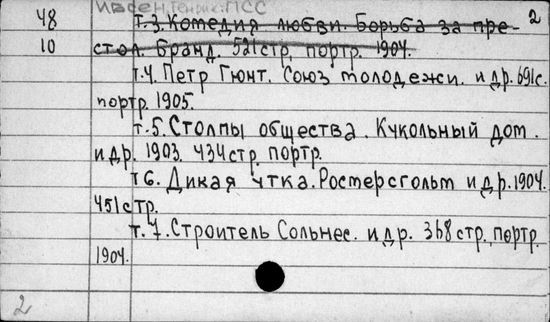 Ибсен, Генрик. ПСС
48 т.3. Комедия любви. Борьба за пре- 2
10 стол. Бранд. 521 стр. портр. 1904.
т.4. Петр Гюнт. Союз молодежи. и др. 691 с.
портр. 1905.
т.5. Столпы общества. Кукольный дом.
и др. 1903. 434 стр. портр.
т 6. Дикая утка. Ростерсгольм и др. 1904.
451 стр.
т.7. Строитель Сольнес. и др. 368 стр. портр.
1904.
2